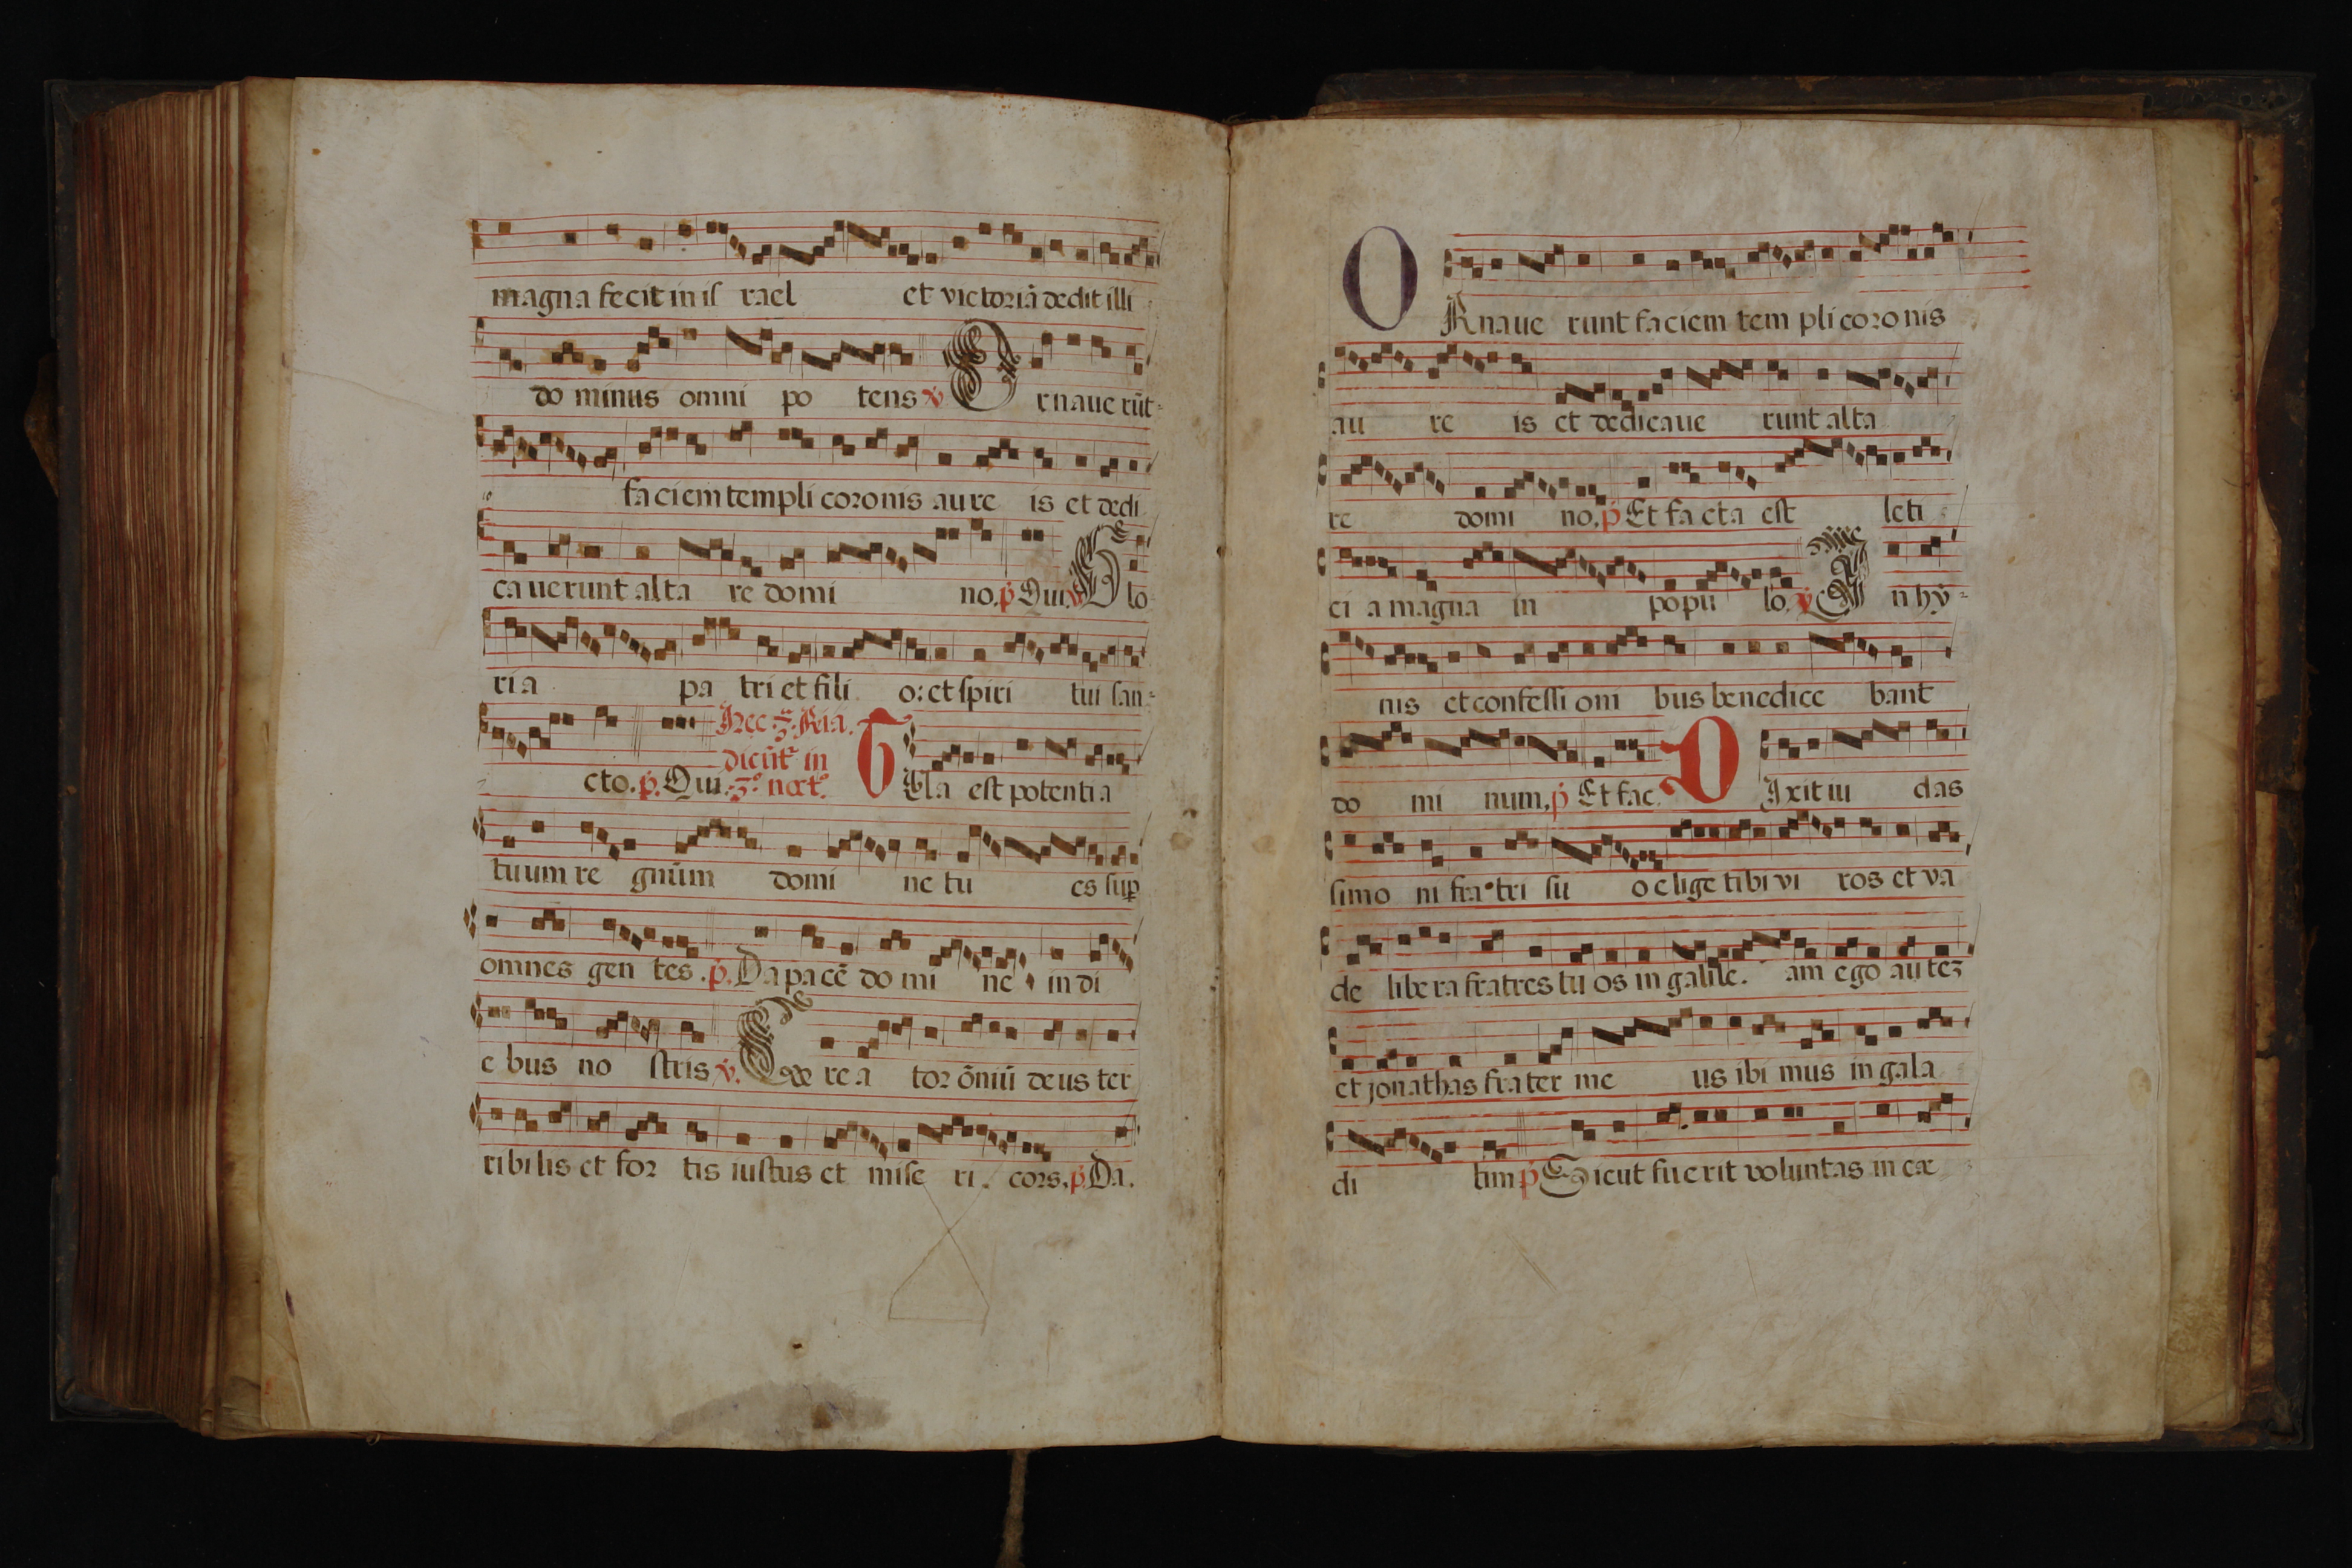 magna fecit in iſ rael et victoriā dedit illi
do minus omni po tens ꝟ Ornaue rūt
faciem templi coronis aure is et dedi
ca uerunt alta re domi no. ꝑ Qui. ꝟ Glo
ria pa tri et fili o: et ſpiri tui ſan
cto. ꝑ. Qui.
dicūt in
3.º noct.º
Tua est potentia
tuum re gnūm domi ne tu es ſuꝑ
omnes gen tes. ꝑ. Da pacē do mi ne in di
e bus no ſtris ꝟ. Cre a tor ōniū deus ter
ribilis et for tis iuſtus et miſe ri. cors. ꝑ. Da.
ORnaue runt faciem tem pli coro nis
au re is et dedicaue runt alta
re domi no. ꝑ Et facta eſt leti
ci a magna in popu lo. ꝟ In hỹ
nis et confeſſi oni bus benedice bant
do mi num. ꝑ Et fac. DIxit iu das
simo ni fratri ſu o elige tibi vi ros et va
de libera fratres tu os in galile. am ego auteʒ
et jonathas frater me us ibi mus in gala
di tim ꝑ Sicut fuerit voluntas in cæ